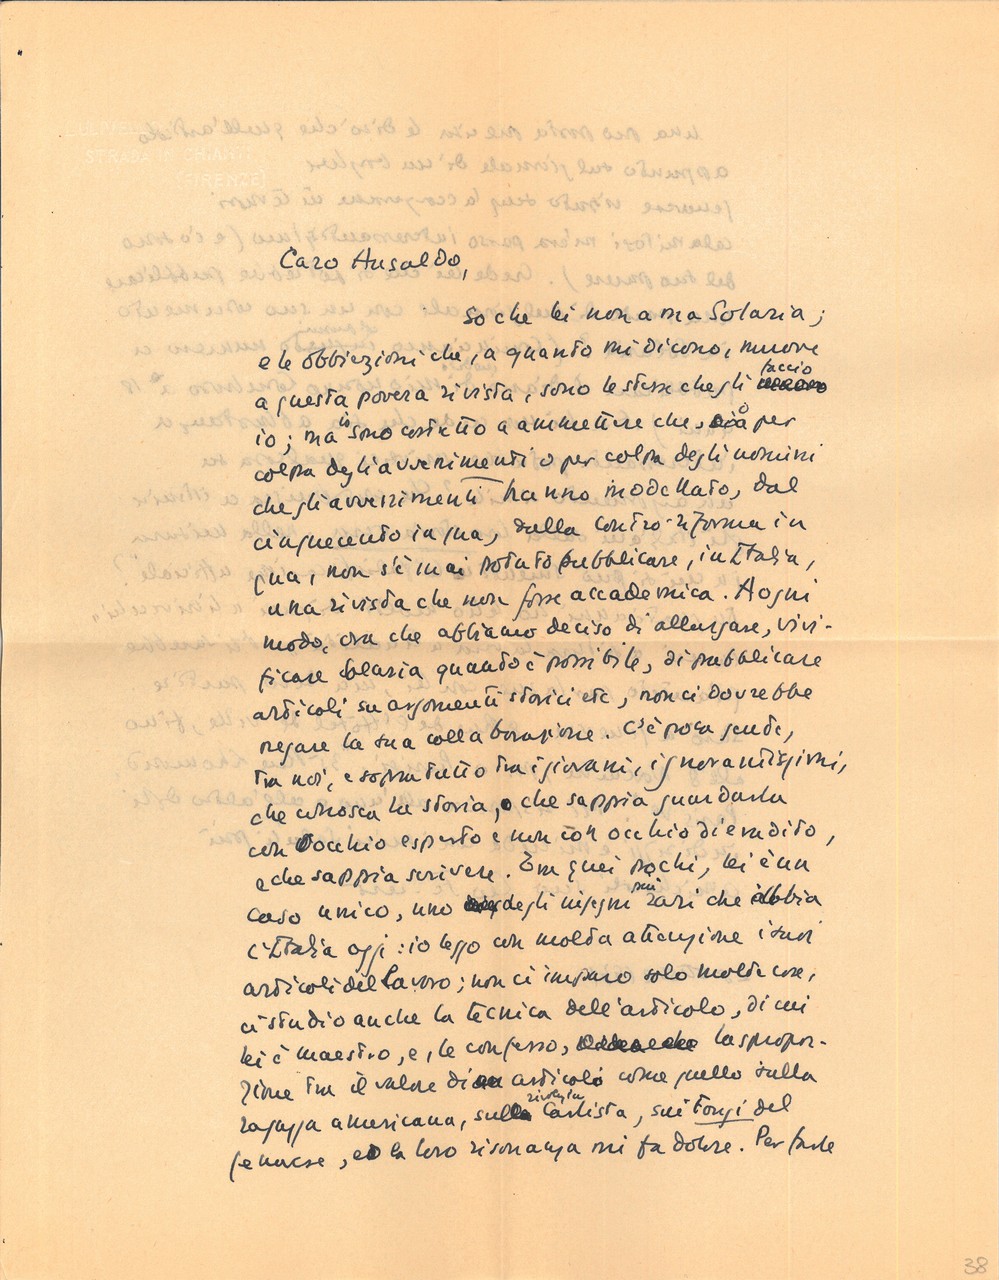 Caro Ansaldo,
so che lei non ama Solaria;
e le obbiezioni che, a quanto mi dicono, muove
a questa povera rivista, sono le stesse che gli faccio
io; ma io sono costretto a ammettere che, o per
colpa degli avvenimenti o per colpa degli uomini
che gli avvenimenti hanno modellato, dal
cinquecento in qua, dalla Contro-riforma in
qua, non s'è mai potuto pubblicare, in Italia,
una rivista che non fosse accademica. A ogni
modo, ora che abbiamo deciso di allungare, vivi-
ficare Solaria quando è possibile, di pubblicare
articoli su argomenti storici etc, non ci dovrebbe
negare la sua collaborazione. C'è poca gente,
tra noi, e sopratutto tra i giovani,
che conosca la storia, o che sappia guardarla
con occhio esperto e non con occhio di erudito,
e che sappia scrivere. Tra quei pochi, lei è un
caso unico, uno degli ingegni più rari che abbia
l'Italia oggi: io leggo con molta attenzione i suoi
articoli del Lavoro; non ci imparo solo molte cose,
ci studio anche la tecnica dell'articolo, di cui
lei è maestro, e, le confesso, la spropor-
zione tra il valore di articoli come quello sulla
ragazza americana, sulla rivolta Carlista, sui Torzi del
genovese, e la loro risonanza mi fa dolore. Per farle
STRADA IN CHIANTI
(FIRENZE)
38